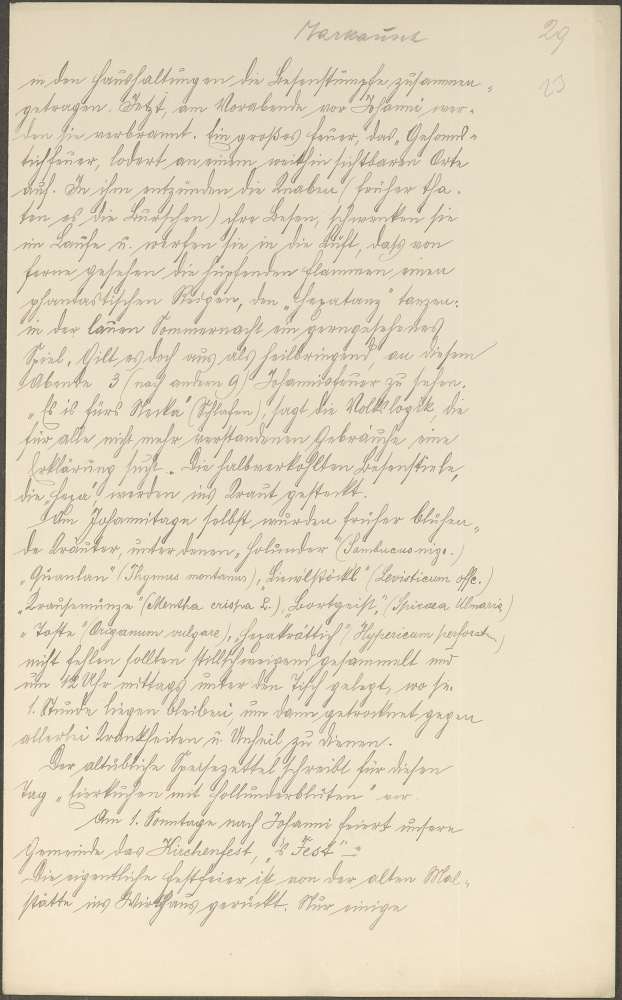 Markausch
29
23
in den Haushaltungen die Besenstümpfe zusammen-
getragen. Jetzt, am Vorabende vor Johanni wer-
den sie verbrannt. Ein großes Feuer, das „Gehonns-
tichfeuer, lodert an einem weithin sichtbaren Orte
auf. In ihm entzünden die Knaben (früher tha-
ten es die Burschen) ihre Besen, schwenken sie
im Laufe u. werfen sie in die Luft, daß von
ferne gesehen die hüpfenden Flammen einen
phantastischen Reigen, den „Hexatanz" tanzen:
in der lauen Sommernacht ein gerngesehenes
Spiel. Gilt es doch aus als heilbringend, an diesem
Abende 3 (nach andern 9) Johannisfeuer zu sehen.
„Es is fürs Necka" (Schlafen), sagt die Volkslogik, die
für alle nicht mehr verstandenen Gebräuche eine
Erklärung sucht. Die halbverkohlten Besenstiele,
die „Hexa", werden ins Kraut gesteckt.
Am Johannitage selbst wurden früher blühen-
de Kräuter, unter denen „Holunder" (Sambucus nigr.)
„Quanlan" (Thymus montanus), (Levisticum offc.)
„Krausemünze" (Mentha crispa L.), „Bortgeist", (Spiraea Ulmaria)
„Toste" (Origanum vulgare), „Hexakrättich" Hypericum perforat.)
nicht fehlen sollten stillschweigend gesammelt und
um 12 Uhr mittags unter den Tisch gelegt, wo sie
1. Stunde liegen bleiben, um dann getrocknet gegen
allerlei Krankheiten u. Unheil zu dienen.
Der altübliche Speisezettel schreibt für diesen
Tag „Eierkuchen mit Hollunderblüten" vor.
Am 1. Sonntage nach Johanni feiert unsere
Gemeinde das Kirchenfest, „'s Fest" –
Die eigentliche Festfeier ist von der alten Mal-
stätte ins Wirtshaus gerückt. Nur einige